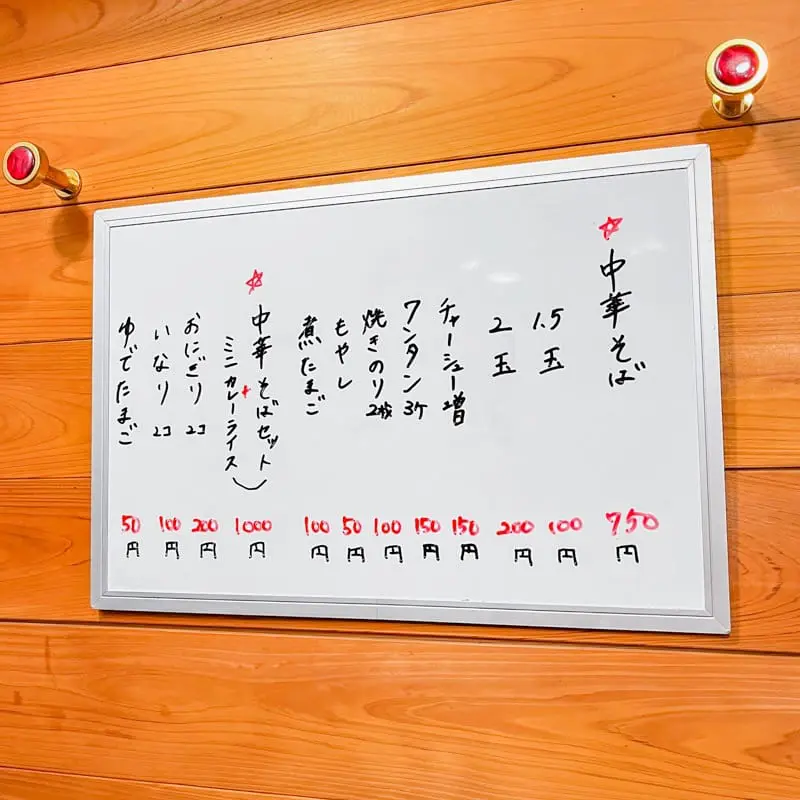 ☆中華そば 750円
1.5玉 100円
2玉 200円
チャーシュー増 150円
ワンタン3ケ 150円
焼きのり2枚 100円
もやし 50円
煮たまご 100円
☆中華そばセット 1000円
+ミニカレーライス
おにぎり2コ 200円
いなり2コ 100円
ゆでたまご 50円